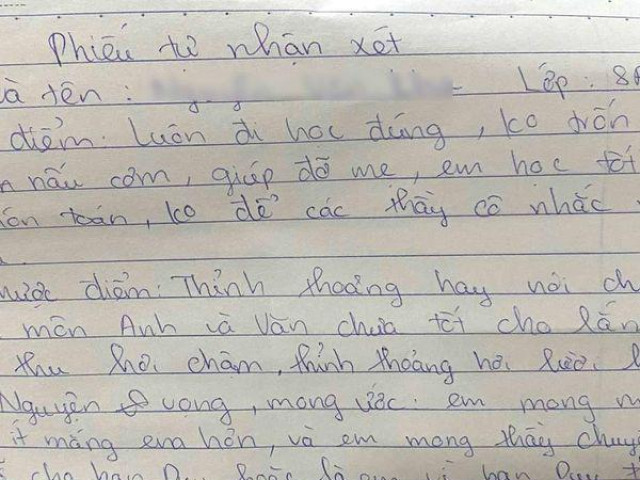 Phiếu tự nhận xét
à tên : Lớp : 8A
điểm: Luôn đi học đúng, ko trốn
nấu cơm, giúp đỡ mẹ, em học tốt
toán, ko để các thầy cô nhắc
điểm: Thỉnh thoảng hay nói ch
môn Anh và Văn chưa tốt cho lắm
thu hơi chậm, thỉnh thoảng hơi lười
Nguyện vọng, mong ước: em mong m
ít mắng em hơn, và em mong thầy chuyể
cho bạn Duy hoặc là em vì bạn Duy